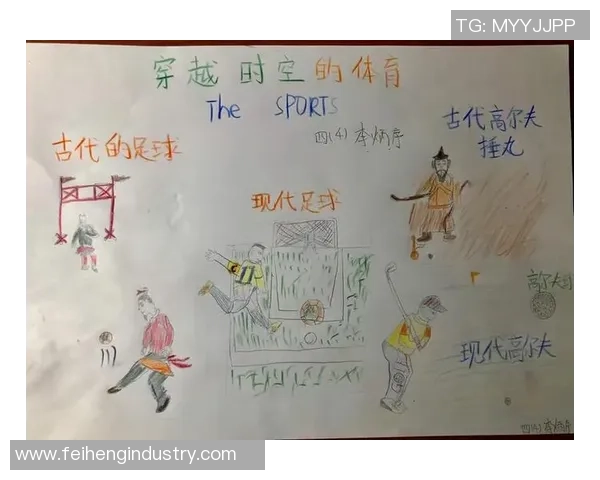 TG: MYYJJPP
穿越时空的体育
The SPORTS
四(4) 李炳序
古代的足球
现代足球
古代高尔夫
捶丸
高尔夫球
现代高尔夫
四(4) 李炳序
www.feihengindustry.com